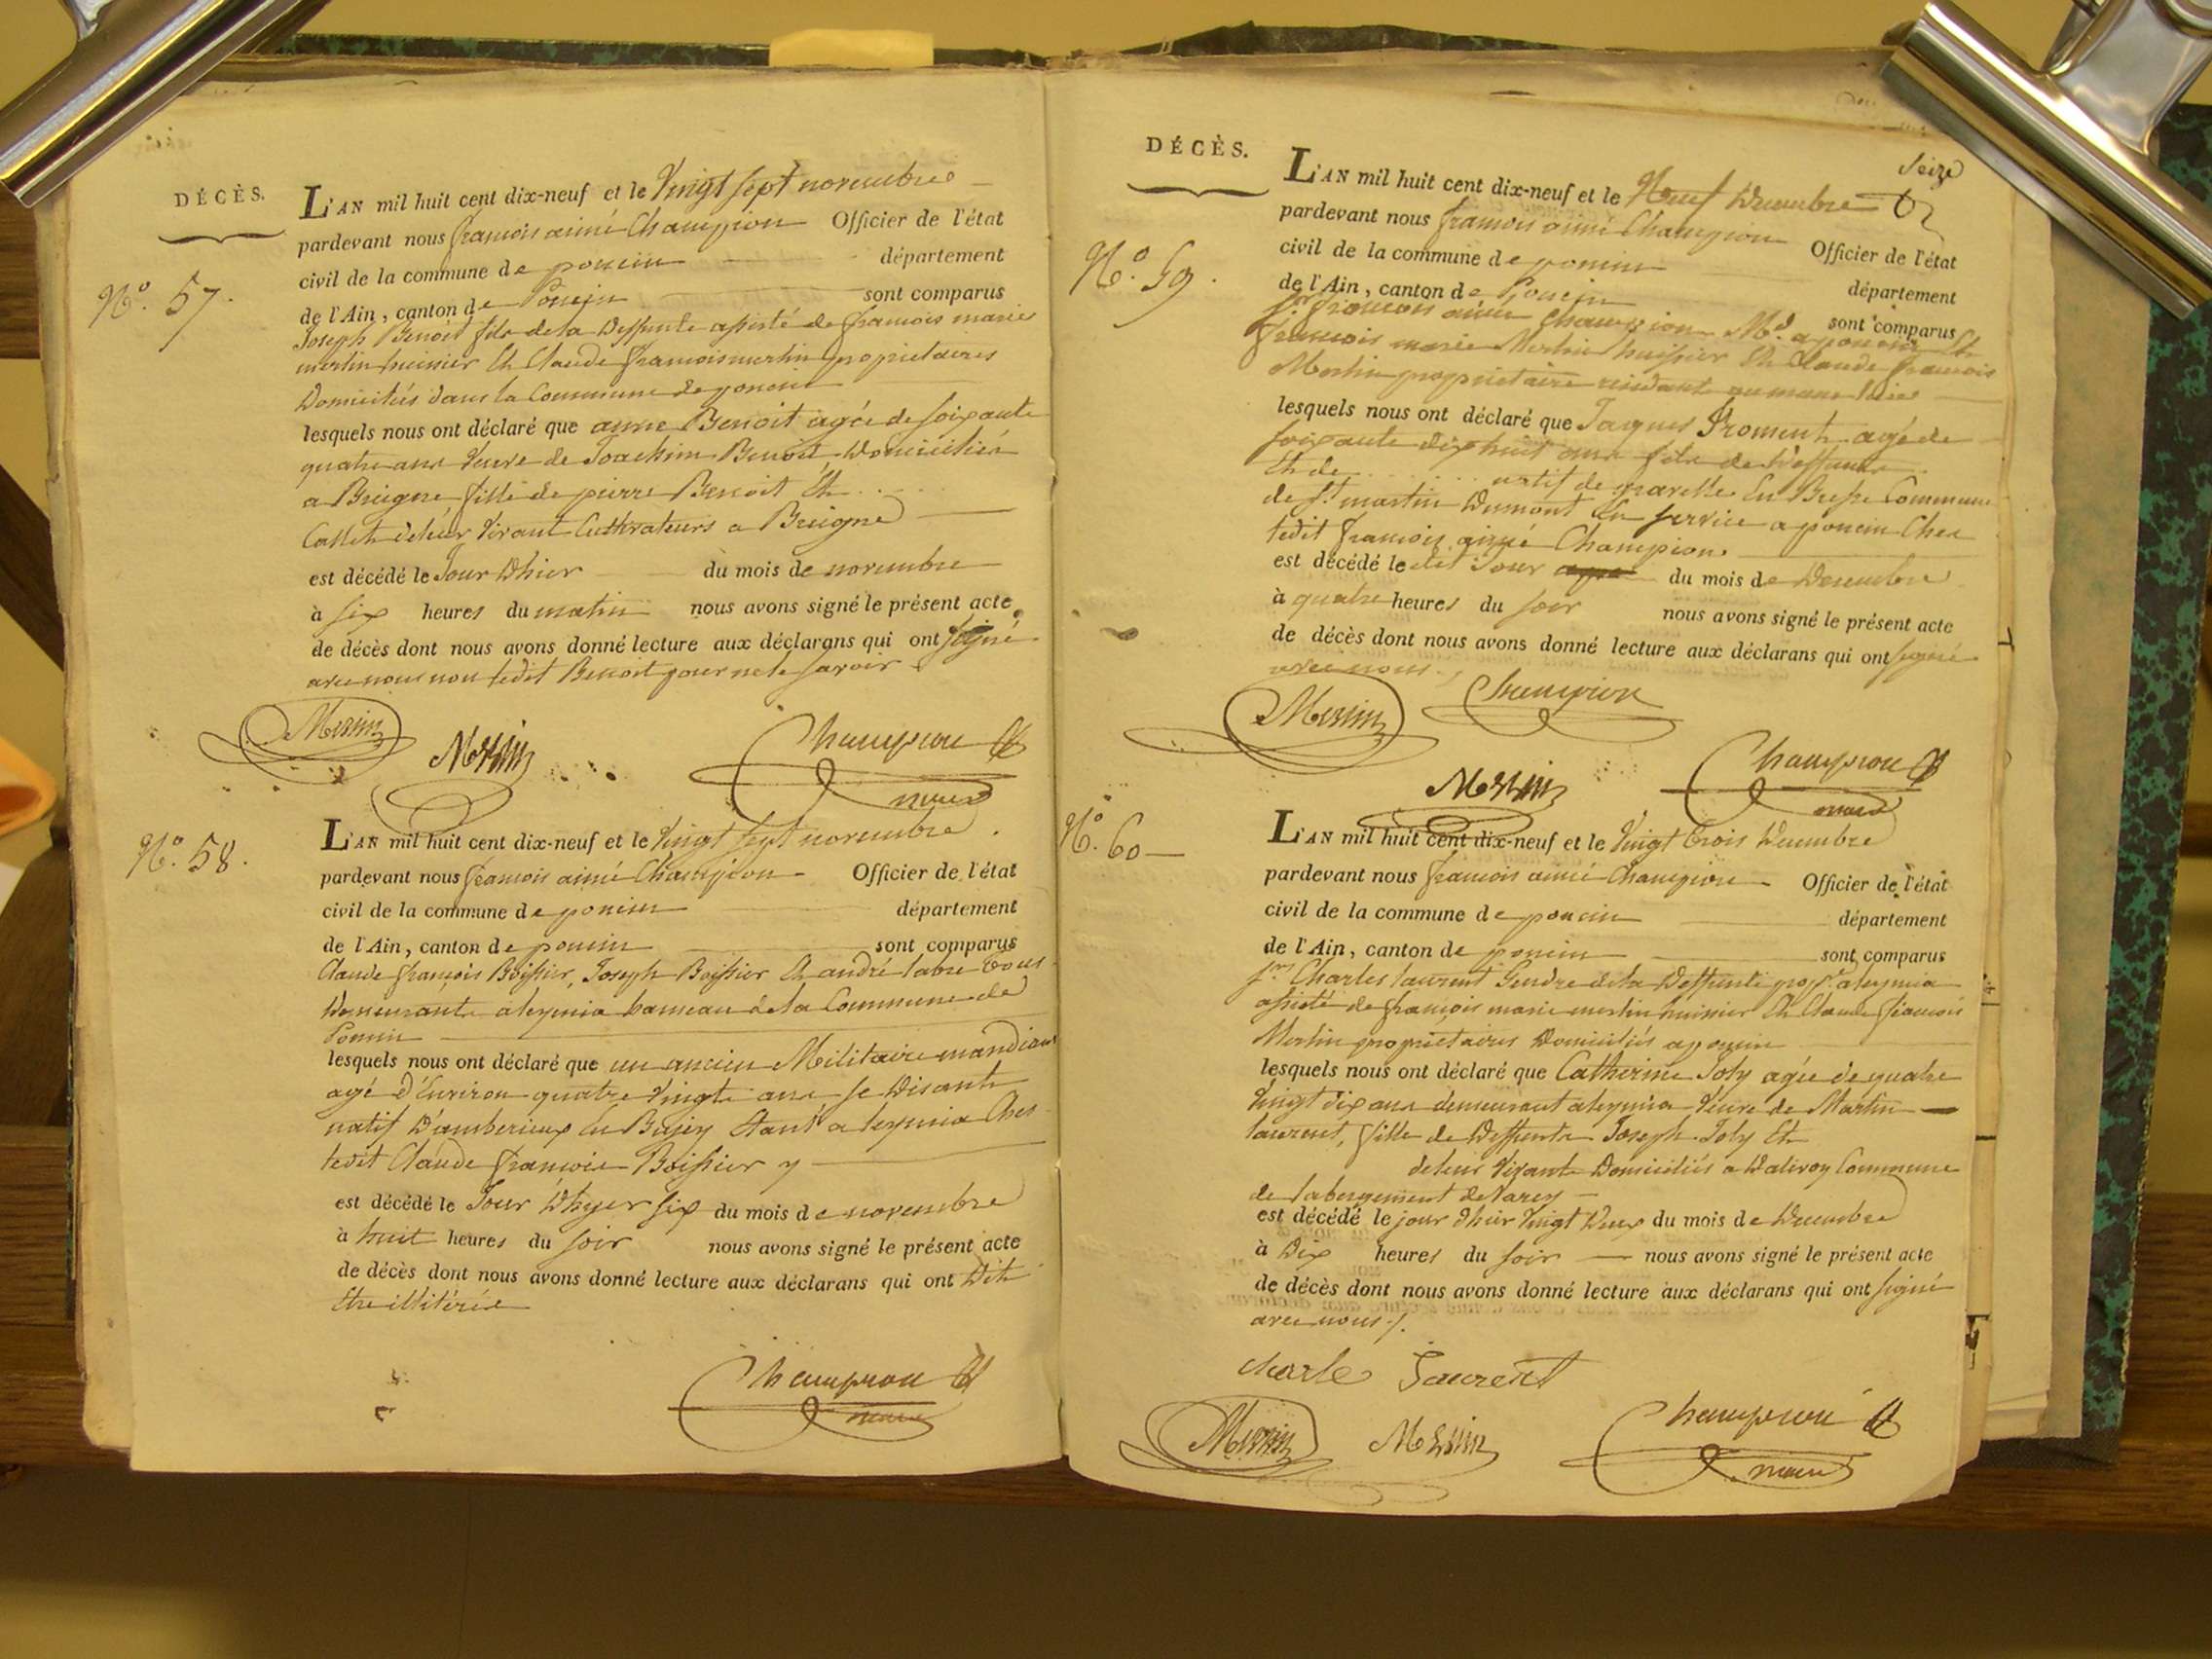 DÉCÈS.
N.° 57.
L'AN mil huit cent dix-neuf et le Vingt sept novembre
pardevant nous françois aimé Champion Officier de l'état
civil de la commune de poncin département
de l'Ain, canton de Poncin sont comparus
Joseph Benoit fils de la Deffunte assisté de françois marie
merlin huissier Et Claude françois merlin proprietaires
Domiciliés dans la Commune de poncin
lesquels nous ont déclaré que anne Benoit agée de soixante
quatre ans Veuve de Joachim Benoit Domiciliée
a Breigne fille de pierre Benoit Et . . . .
Callet deleur Vivant Cultivateurs a Breigne
est décédé le Jour Dhier du mois de novembre
à six heures du matin nous avons signé le présent acte
de décès dont nous avons donné lecture aux déclarans qui ont signé
avec nous non ledit Benoit pour ne le savoir
Merlin
Merlin
Champion
maire
N.° 58.
L'AN mil huit cent dix-neuf et le Vingt sept novembre
pardevant nous françois aimé Champion Officier de l'état
civil de la commune de poncin département
de l'Ain, canton de poncin sont comparus
Claude françois Boissier, Joseph Boissier Et andré labre Tous
Demeurants a leymia hameau de la Commune de
Poncin
lesquels nous ont déclaré que un ancien Militaire mandiant
agé d'Environ quatre Vingts ans se Disant
natif D'amberieux En Bujey Etant a leymia Ches
ledit Claude françois Boissier y
est décédé le Jour Dhyer six du mois de novembre
à huit heures du soir nous avons signé le présent acte
de décès dont nous avons donné lecture aux déclarans qui ont Dit
Etre illitérés
Champion
maire
Seize
DÉCÈS.
N.° 59.
L'AN mil huit cent dix-neuf et le Neuf Decembre
pardevant nous françois aimé Champion Officier de l'état
civil de la commune de poncin département
de l'Ain, canton de Poncin sont comparus
s.r françois aimé Champion M.d a poncin Et
françois marie Merlin huissier Et Claude françois
Merlin proprietaire residants au meme lieu
lesquels nous ont déclaré que Jaques Froment agé de
soixante dix huit ans fils de Deffunts
Et de . . . . natif de marelle En Bresse Commune
de S.t martin Dumont En service a poncin Ches
ledit françois aimé Champion
est décédé le dit Jour du mois de Decembre
à quatre heures du soir nous avons signé le présent acte
de décès dont nous avons donné lecture aux déclarans qui ont signé
avec nous
Merlin
Champion
Merlin
Champion
maire
N.° 60
L'AN mil huit cent dix-neuf et le Vingt Trois Decembre
pardevant nous françois aimé Champion Officier de l'état
civil de la commune de poncin département
de l'Ain, canton de poncin sont comparus
s.r Charles laurent Gendre de la Deffunte prop.re a leymia
assisté de françois marie merlin huissier Et Claude françois
Merlin proprietaires Domiciliés a poncin
lesquels nous ont déclaré que Catherine Joly agée de quatre
Vingt dix ans demeurant a leymia Veuve de Martin
laurent, fille de Deffunts Joseph Joly Et
deleur Vivants Domiciliés a Dalivoy Commune
de labergement de Varey
est décédé le jour dhier Vingt Deux du mois de Decembre
à Dix heures du soir nous avons signé le présent acte
de décès dont nous avons donné lecture aux déclarans qui ont signé
avec nous
charle Laurent
Merlin
Merlin
Champion
maire